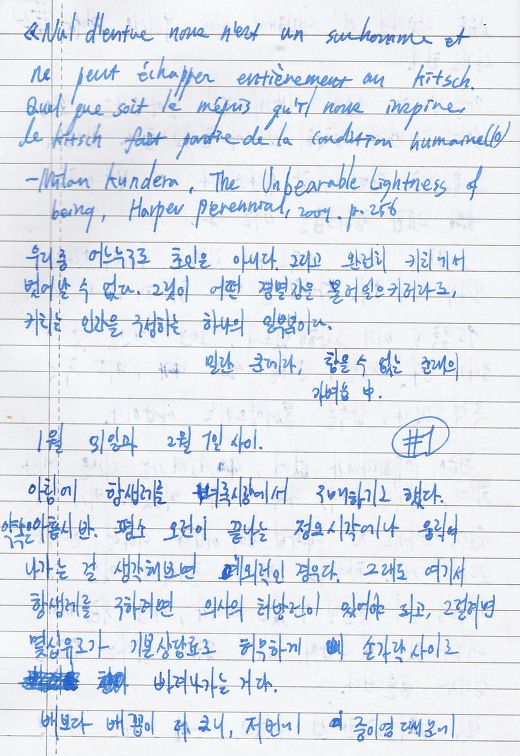 «Nul d'entre nous n'est un surhomme et
ne peut échapper entièrement au kitsch.
Quel que soit le mépris qu'il nous inspire,
le kitsch fait partie de la condition humaine(10)
-Milan Kundera, The Unbearable Lightness of
being, Harper perennial, 2009. p. 256
우리중 어느누구도 초인은 아니다. 그리고 완전히 키치에서
벗어날 수 없다. 그것이 어떤 경멸감을 불러일으키더라도,
키치는 인간을 구성하는 하나의 일부분이다.
밀란 쿤데라, 참을 수 없는 존재의
가벼움 中.
1월 31일과 2월 1일 사이.
#1
아침에 항생제를 벼룩시장에서 구매하기로 했다.
약속은 아홉시 반. 평소 오전이 끝나는 정오시각에나 움직여
나가는 걸 생각해보면 예외적인 경우다. 그래도 여기서
항생제를 구하려면 의사의 처방전이 있어야 되고, 그럴려면
몇십유로가 기본상담료로 허무하게 손가락사이로
빠져나가는 거다.
배보다 배꼽이 더 크니, 저번에 중이염 때문에